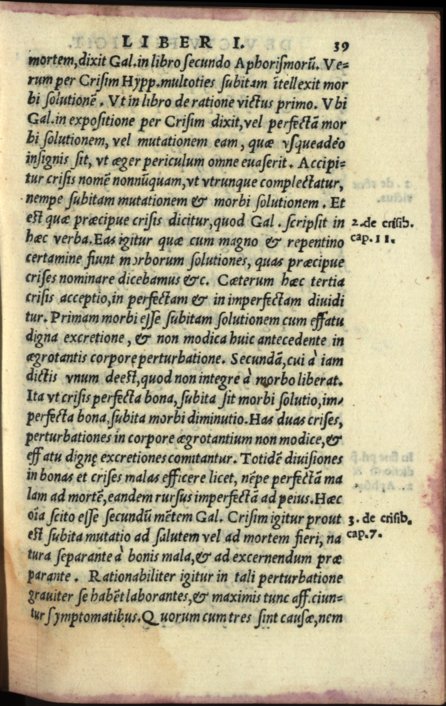 LIBER I. 39
mortem,dixit Gal.in libro secundo Aphorismorũ. Ve=
rum per Crisim Hypp.multoties subitam ĩtellexit mor
bi solutionẽ. Vt in libro de ratione victus primo. Vbi
Gal.in expositione per Crisim dixit,vel perfectã mor
bi solutionem, vel mutationem eam, quæ vsqueadeo
insignis sit, vt æger periculum omne euaserit. Accipi=
tur crisis nomẽ nonnũquam,vt vtrunque complectatur,
nempe subitam mutationem & morbi solutionem. Et
est quæ præcipue crisis dicitur,quod Gal. scripsit in
2.de crisib.
hæc verba.Eas igitur quæ cum magno & repentino
cap.11.
certamine fiunt morborum solutiones, quas præcipue
crises nominare dicebamus &c. Cæterum hæc tertia
crisis acceptio,in perfectam & in imperfectam diuidi
tur. Primam morbi esse subitam solutionem cum effatu
digna excretione, & non modica huic antecedente in
ægrotantis corpore perturbatione. Secundã,cui à iam
dictis vnum deest,quod non integre à morbo liberat.
Ita vt crisis perfecta bona, subita sit morbi solutio,im=
perfecta bona,subita morbi diminutio.Has duas crises,
perturbationes in corpore ægrotantium non modice,&
effatu dignę excretiones comitantur. Totidẽ diuisiones
in bonas et crises malas efficere licet, nẽpe perfectã ma
lam ad mortẽ,eandem rursus imperfectã ad peius.Hæc
oĩa scito esse secundũ mẽtem Gal. Crisim igitur prout
3. de crisib.
est subita mutatio ad salutem vel ad mortem fieri, na
cap.7.
tura separante à bonis mala,& ad excernendum præ
parante. Rationabiliter igitur in tali perturbatione
grauiter se habẽt laborantes,& maximis tunc afficiun=
tur symptomatibus.Quorum cum tres sint causæ,nem